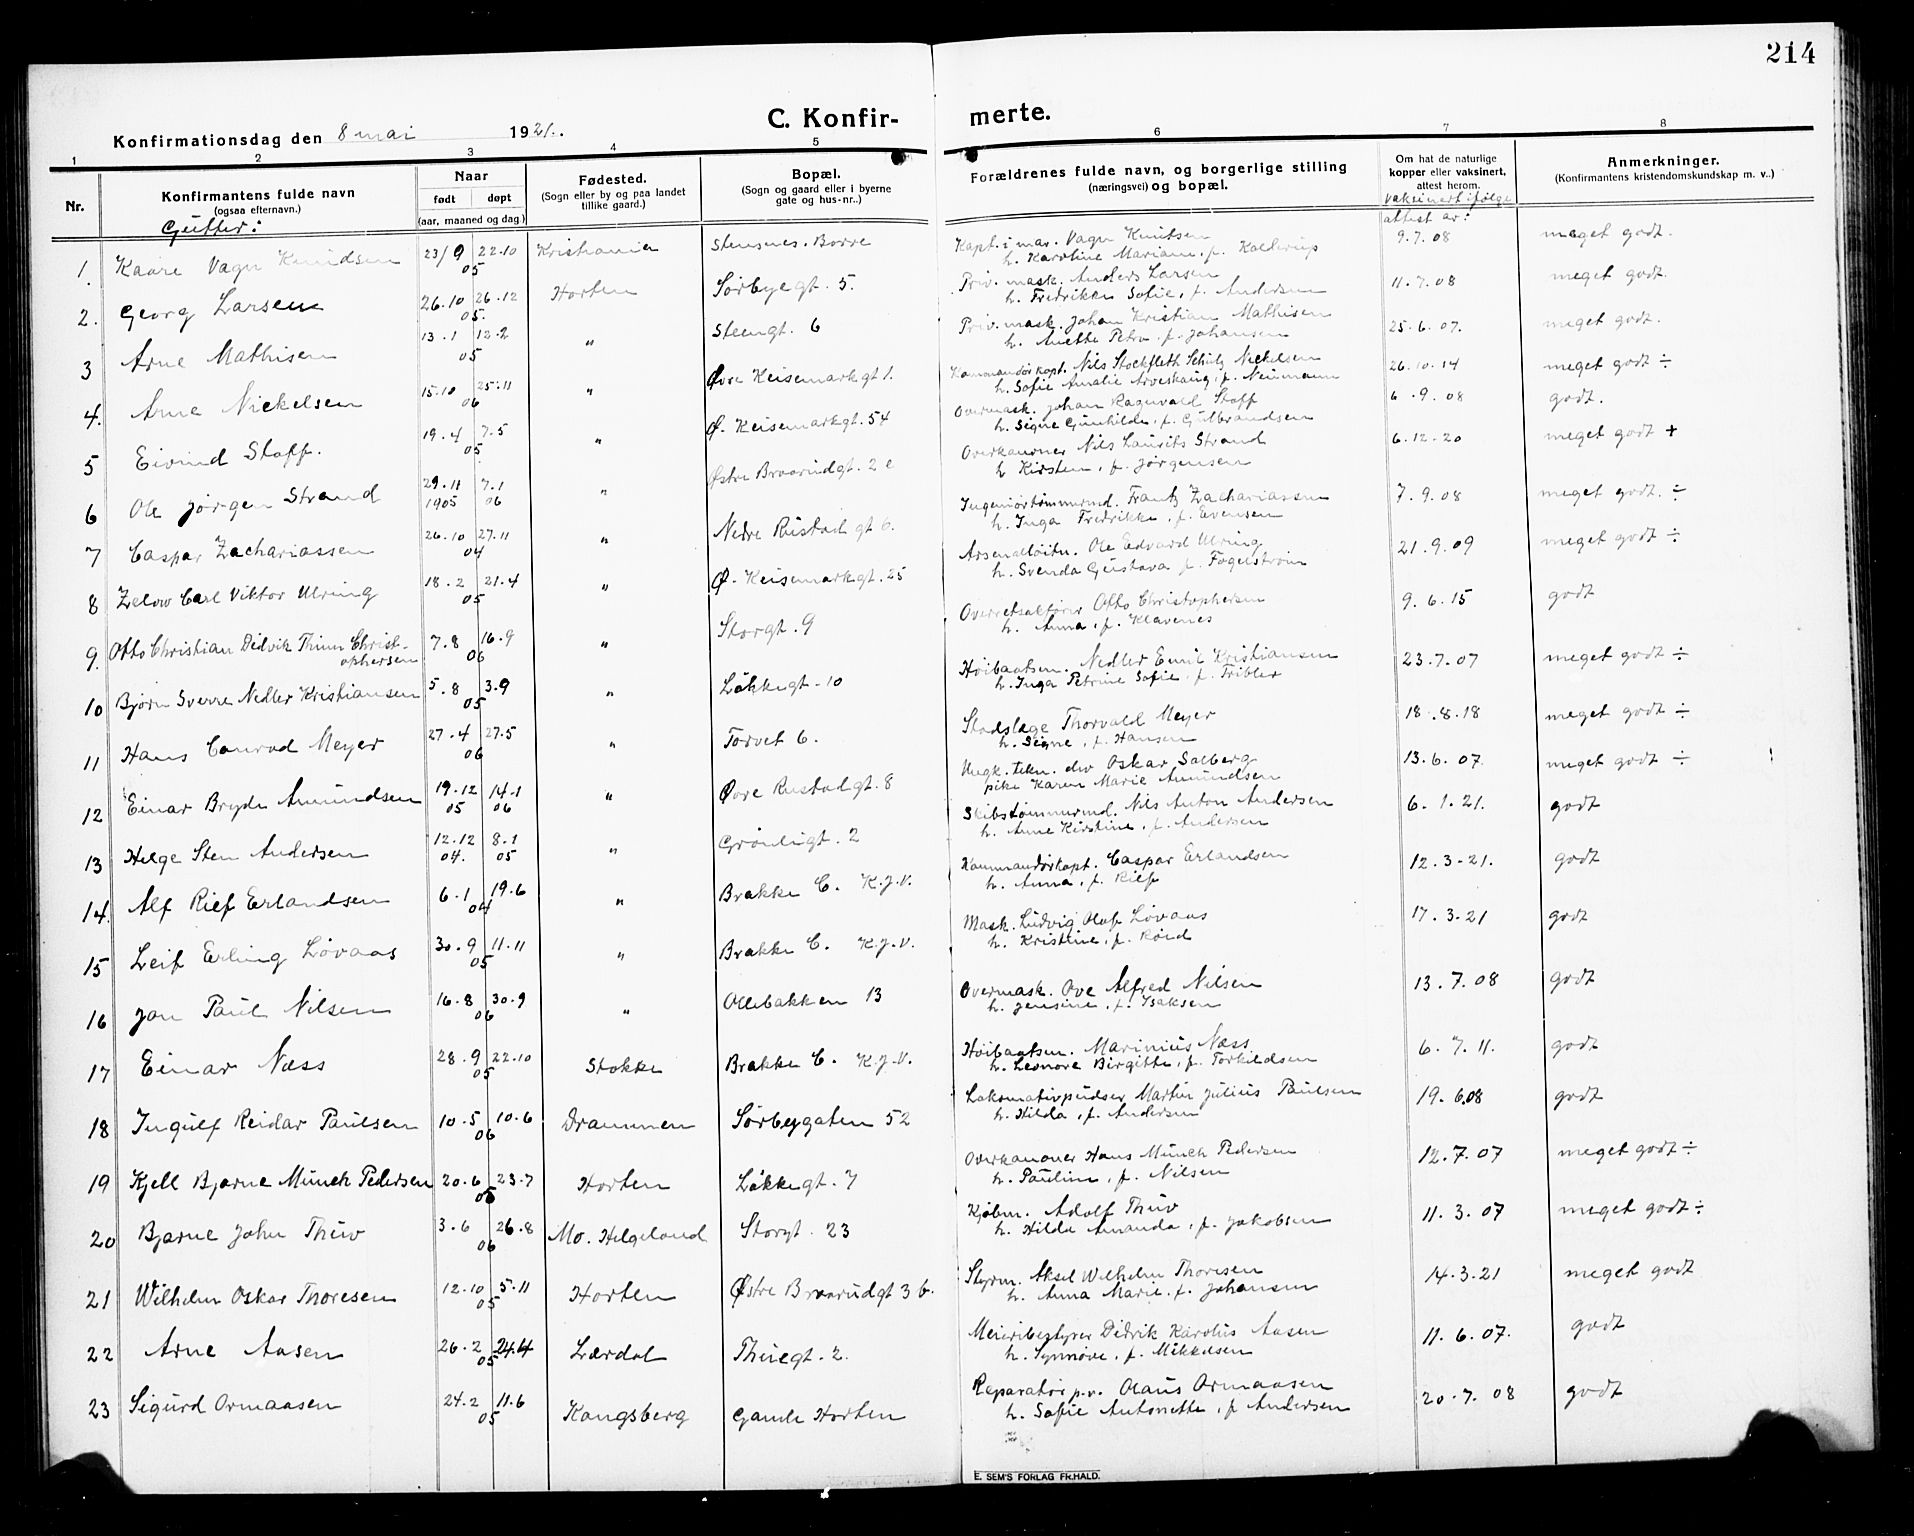 214
C. Konfir- merte.
Konfirmationsdag den 8 mai 1921.
1 2 3 4 5 6 7 8
Nr.
Konfirmantens fulde navn
(ogsaa efternavn.)
Naar
født døpt
(aar, maaned og dag)
Fødested.
(Sogn eller by og paa landet
tillike gaard.)
Bopæl.
(Sogn og gaard eller i byerne
gate og hus-nr..)
Forældrenes fulde navn, og borgerlige stilling
(næringsvei) og bopæl.
Om hat de naturlige
kopper eller vaksinert,
attest herom.
vaksinert ifølge
attest av:
Anmerkninger.
(Konfirmantens kristendomskundskap m. v..)
Gutter:
1. Kaare Vagn Knudsen 23/9 22.10 05 Kristiania Stensnes. Borre Kapt. i mar. Vagn Knutsen 9.7.08 meget godt.
h. Karoline Mariane, f. Kolderup
2. Georg Larsen 26.10 26.12 05. Horten Sørbyegt. 5. Priv. mask. Anders Larsen 11.7.08 meget godt.
h. Fredrikke Sofie, f. Andersen
3 Arne Mathisen 13.1 12.2 05 " Steengt. 6 Priv. mask. Johan Kristian Mathisen 25.6.07. meget godt.
h. Anette Petra, f. Johansen
4. Arne Nickelsen 15.10 25.11 06 " Øvre Keisemarkgt 1. Kommandørkapt. Nils Stockfleth Schulz Nickelsen 26.10.14 meget godt ÷
h. Sofie Amalie Arveskaug, f. Neumann
5 Eivind Staff. 19.4 7.5 05 " Ø. Keisemarkgt. 54 Overmask. Johan Ragnvald Staff 6.9.08 godt.
h. Signe Gunhilde, f. Gulbrandsen
6 Ole Jørgen Strand 29.11 1905 7.1 06 " Østre Braarudgt. 2 c Overkanoner Nils Laurits Strand 6.12.20 meget godt +
h. Kirsten, f. Jørgensen
7 Caspar Zachariassen 26.10 27.11 04 " Nedre Rustad gt 6. Ingeniørtømmermd. Frantz Zachariassen 7.9.08 meget godt. ÷
h. Inga Fredrikke, f. Evensen
8 Zelow Carl Viktor Ulring 18.2 21.4 05 " Ø. Keisemarkgt. 25 Arsenalløitn. Ole Edvard Ulring 21.9.09 meget godt ÷
h. Svenda Gustava f. Fagerstrøm
9. Otto Christian Didvik Thun Christ-
ophersen 7.8 16.9 06 " Storgt. 9 Overretsakfører Otto Christophersen 9.6.15 godt
h. Anna, f. Klavenes
10 Bjørn Sverre Nedler Kristiansen 5.8 3.9 05 " Løkkegt. 10 Høibaatsm. Nedler Emil Kristiansen 23.7.07 meget godt ÷
h. Inga Petrine Sofie, f. Fribler
11 Hans Conrad Meyer 27.4 27.5 06 " Torvet 6. Stadslæge Thorvald Meyer 18.8.18 meget godt ÷
h. Signe, f. Hansen
12 Einar Bryde Amundsen 19.12 05 14.1 06 " Øvre Rustadgt. 8 Ungk. tekn. elev Oskar Solberg 13.6.07. meget godt ÷
pike Karen Marie Amundsen
13 Helge Sten Andersen 12.12 04. 8.1 05 " Grønligt. 2 Skibstømmermd. Nils Anton Andersen 6.1.21. godt
h. Anne Kirstine, f. Andersen
14. Alf Rief Erlandsen 6.1 19.6 04 " Brakke C. K.J.V. Kommandørkapt. Caspar Erlandsen 12.3-21. godt
h. Anna, f. Rief
15 Leif Erling Løvaas 30.9 11.11 05 " Brakke C. K.J.V. Mask. Ludvig Olaf Løvaas 17.3.21 godt
h. Kristine, f. Røed
16 Jon Paul Nilsen 16.8 30.9 06 " Ollebakken 13 Overmask. Ove Alfred Nilsen 13.7.08 godt
h. Jensine, f. Isaksen
17 Einar Næss 28.9 22.10 05 Stokke Brakke C. K.J.V. Høibaatsm. Marinius Næss 6.7.11. godt
h. Leonore Birgitte, f. Torkildsen
18 Ingulf Reidar Paulsen 10.5 10.6 06 Drammen Sørbygaten 52 Lokomotivpudser Martin Julius Paulsen 19.6.08 godt
h. Hilda, f. Andersen
19 Kjell Bjarne Münch Pedersen 20.6 23.7 05 Horten Løkkegt. 7 Overkanoner Hans Münch Pedersen 12.7.07 meget godt ÷
h. Pauline, f. Nilsen
20 Bjarne John Thuv 3.6 26.8 06 Mo. Helgeland Storgt. 23 Kjøbm. Adolf Thuv 11.3.07 meget godt ÷
h. Hilda Amanda, f. Jakobsen
21 Wilhelm Oskar Thoresen 12.10 5.11 05 Horten Østre Braarudgt 3 b. Styrm. Aksel Wilhelm Thoresen 14.3.21 meget godt
h. Anna Marie, f. Johansen
22 Arne Aasen 26.2 24.4 05 Lærdal Thuegt. 2. Meieribestyrer Didrik Karolus Aasen 11.6.07. godt
h. Synnøve, f. Mikkelsen
23 Sigurd Ormaasen 24.2 11.6 05 Kongsberg Gamle Horten Reparatør p.v. Olaus Ormaasen 20.7.08 godt
h. Sofie Antonette, f. Andersen
E. SEM'S FORLAG FR.HALD.